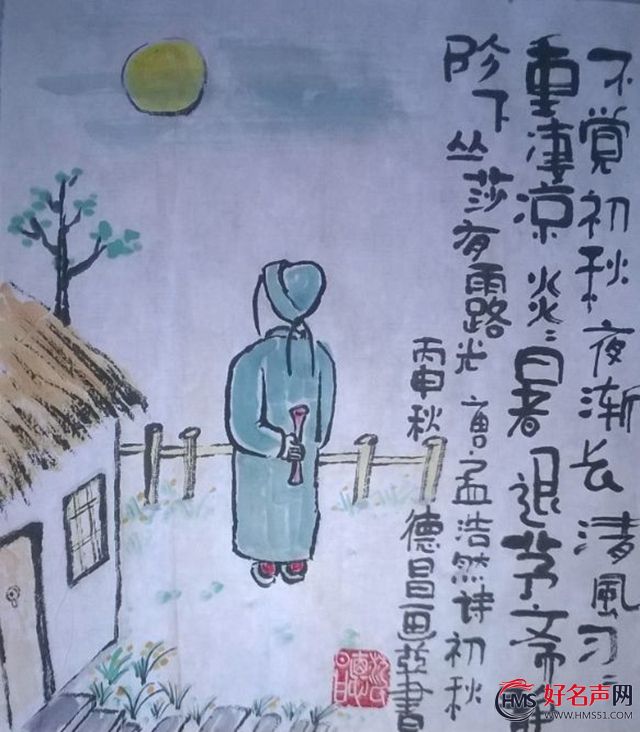 不覺初秋夜渐长清風习〻
重淒凉炎〻暑退茅斋静
阶下丛莎有露光 唐·孟浩然詩初秋
丙申秋 德昌画並書
HMS
好名声网
HMS51.COM